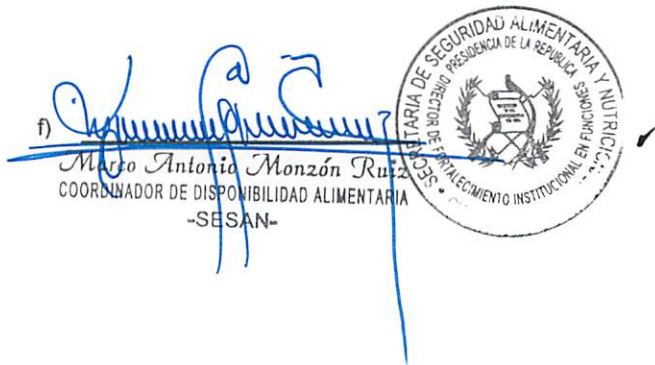 f)
Marco Antonio Monzón Ruiz
COORDINADOR DE DISPONIBILIDAD ALIMENTARIA
-SESAN-
SECRETARIA DE SEGURIDAD ALIMENTARIA Y NUTRICIONAL
PRESIDENCIA DE LA REPUBLICA
DIRECTOR DE FORTALECIMIENTO INSTITUCIONAL EN FUNCIONES